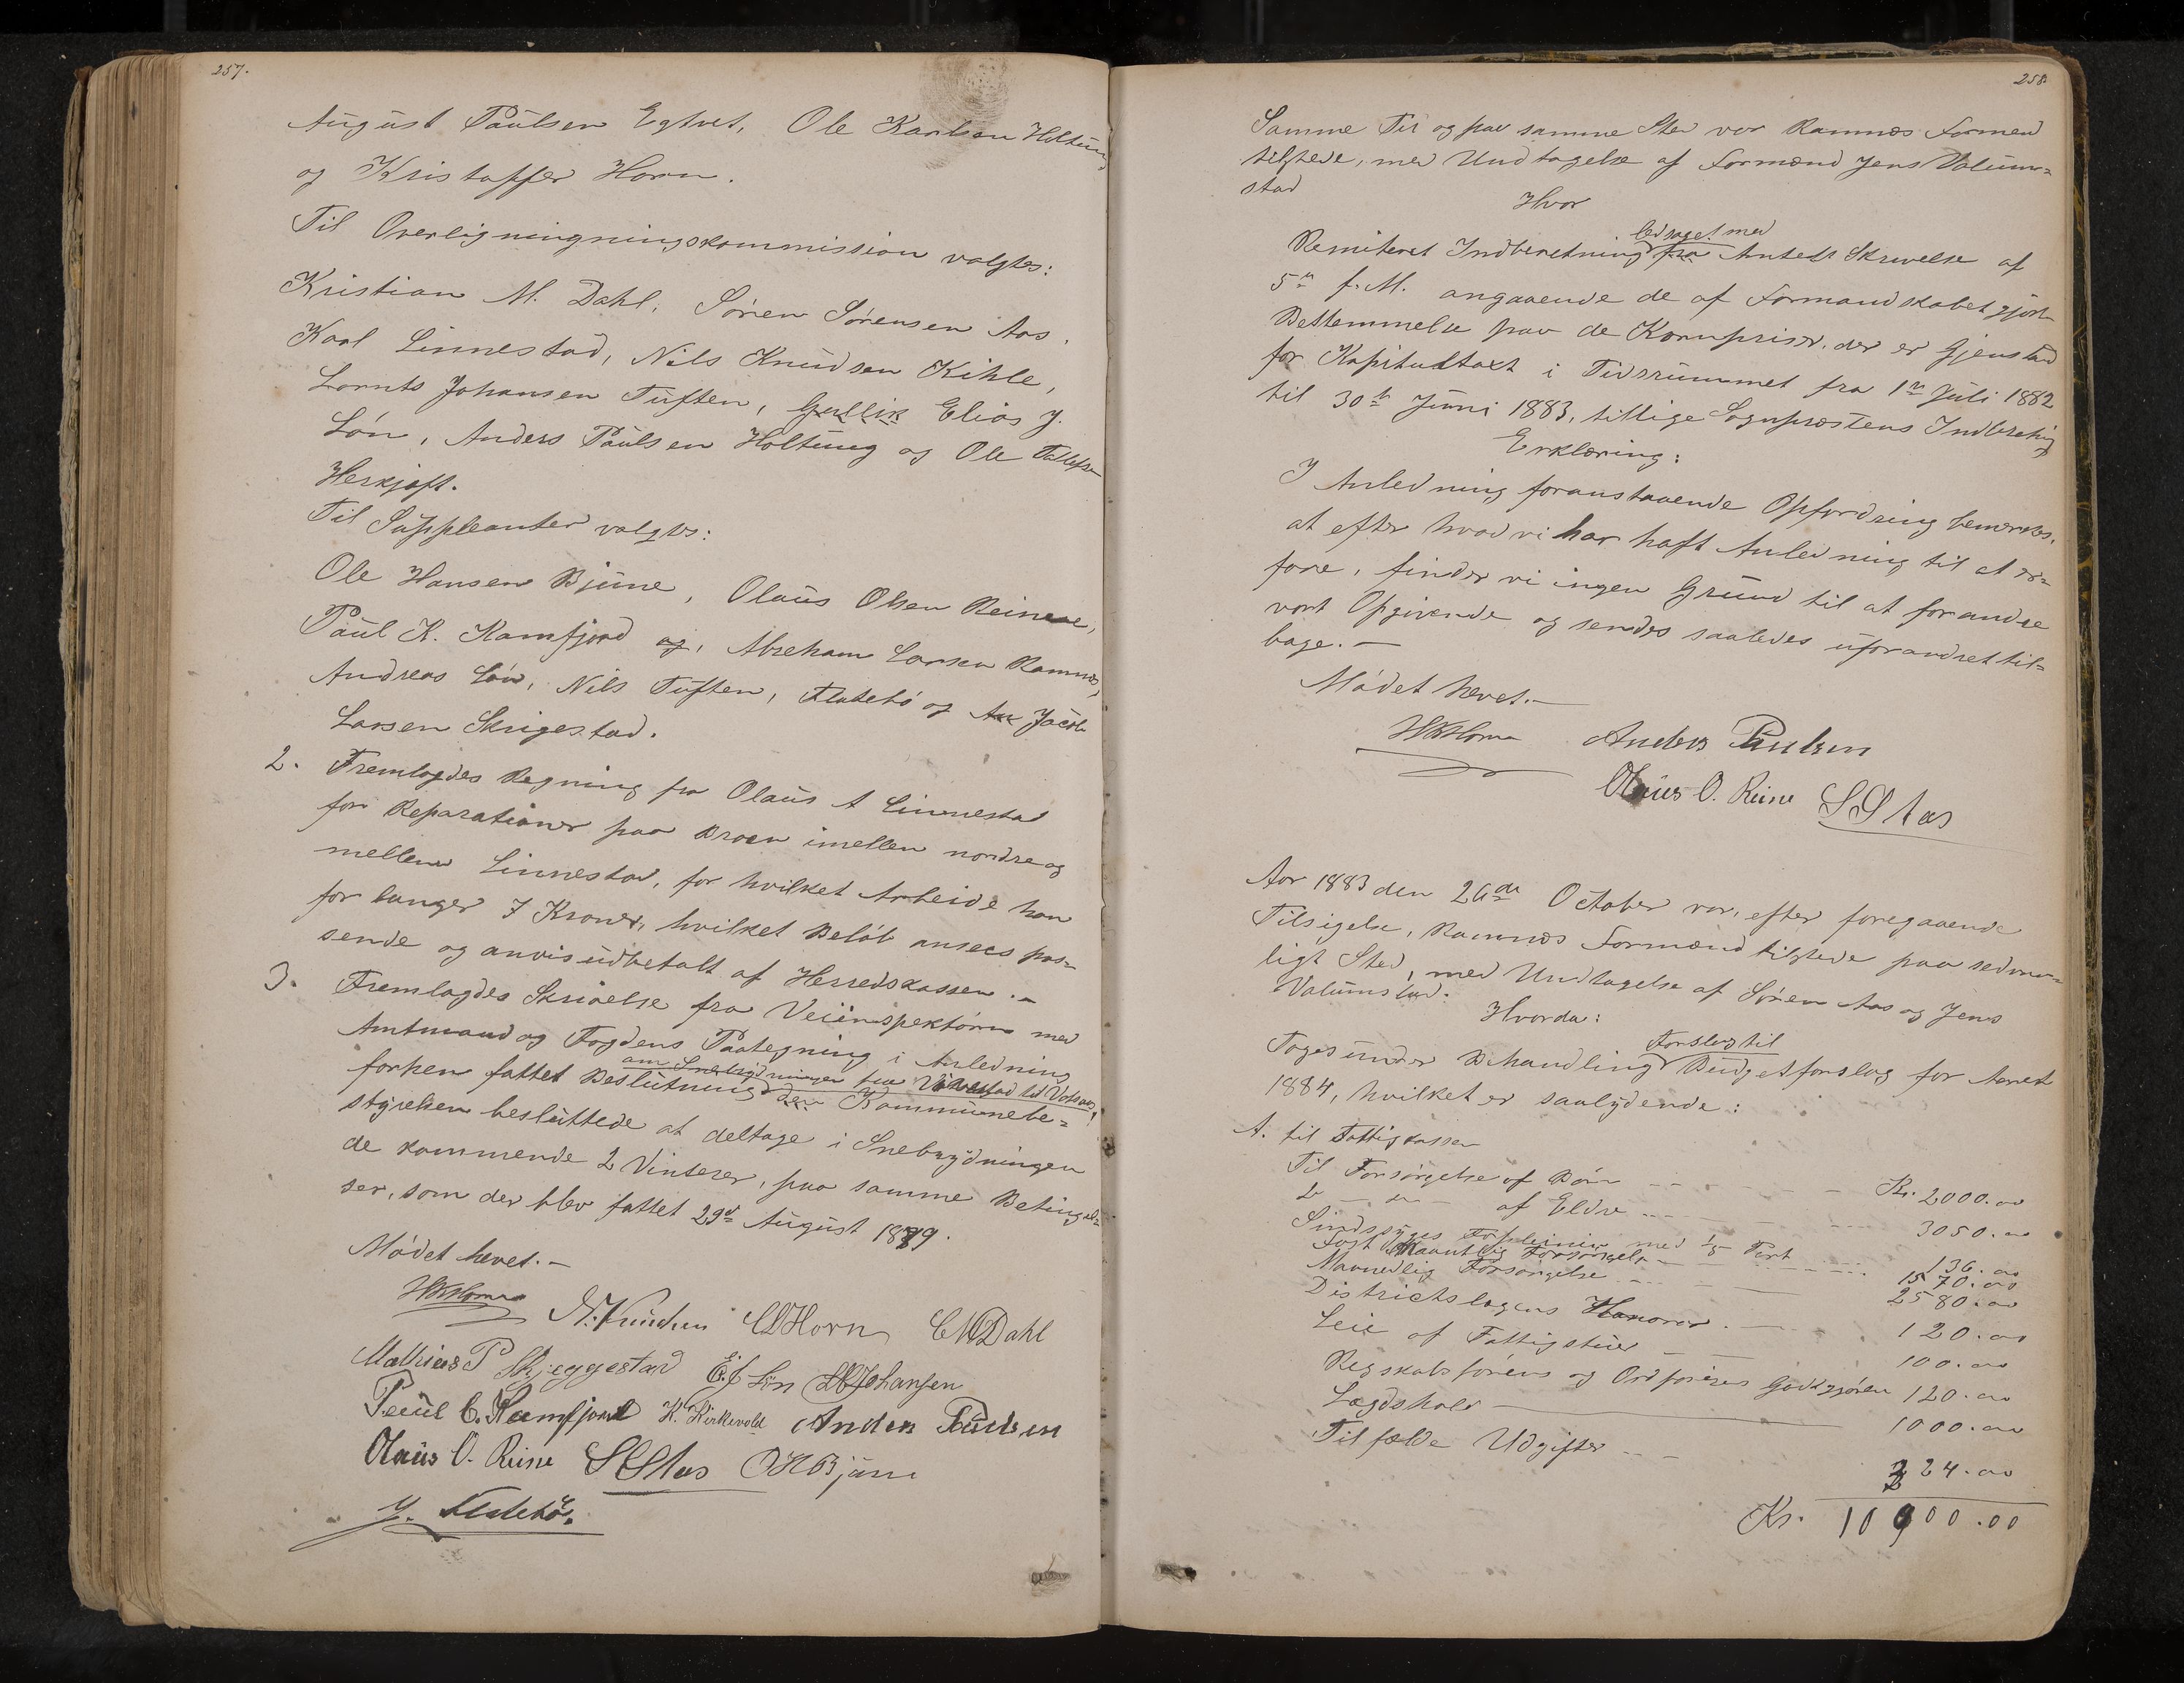 257.
August Paulsen Egtvet, Ole Karlsen Holtung
og Kristoffer Horn.
Til Overligningningskommission valgtes:
Kristian M. Dahl, Søren Sørensen Aas,
Karl Linnestad, Nils Knudsen Kihle,
Lornts Johansen Tuften, Gullik Elias J.
Lön, Anders Paulsen Holtung og Ole Tollefsen
Herskjøft.
Til Suppleanter valgtes:
Ole Hansen Bjune, Olaus Olsen Reine,
Paul K. Kamfjord og, Abreham Larsen Ramnes,
Andreas Lön, Nils Tuften, Flatehö og Jacob
Larsen Skrigestad.
2. Fremlagdes Regning fra Olaus A Linnestad
for Reparationer paa Broen imellem nordre og
mellem Linnestad, for hvilket Arbeide han
forlanger 7 Kroner, hvilket Beløb ansees pas-
sende og anvis udbetalt af Herredskassen.-
3. Fremlagdes Skrivelse fra Veiinspektøren med
Amtmand og Fogdens Paategning i Anledning
om Snebrydningen fra Vivestad til
forhen fattet Beslutning den Kommunebe=
styrelsen besluttede at deltage i Snebrydningen
de kommende 2 Vinterer, paa samme Betingel=
ser, som der blev fattet 29d August 1879.
Mödet hevet.-
HKHorn
N. Knudsen CLHorn CMDahl
Mathias P Skjeggestad E.J Lön LJohansen
Paul C. Kamfjord K. Kirkevold Anders Paulsen
Olaus O. Reine SSAas OHBjune
J. Flatehö.
258.
Samme Tid og paa samme Sted var Ramnes Formænd
tilstede, med Undtagelse af Formænd Jens Valum=
stad
Hvor
ledsaget med
Remiteret Indberetning fra Amtets Skrivelse af
5te f. M. angaaende de af Formandskabet gjorte
Bestemmelse paa de Kornpriser, der er Gjenstand
for Kapitultaxt i Tidsrummet fra 1ste Juli 1882
til 30te Juni 1883, tillige Sognpræstens Indberetning
Erklæring:
I Anledning foranstaaende Opfordring bemærkes,
at efter hvad vi har haft Anledning til at er=
fare, finder vi ingen Grund til at forandre
vort Opgivende og sendes saaledes uforandret til=
bage.-
Mödet hevet.-
HKHorn Anders Paulsen
Olaus O. Reine SSAas
Aar 1883 den 26de October var, efter foregaaende
Tilsigelse, Ramnes Formænd tilstede paa sedvan=
ligt Sted, med Undtagelse af Søren Aas og Jens
Valumstad.
Hvorda:
Forslag til
Toges under Behandling Budgetforslag for Aaret
1884, hvilket er saalydende:
A. til Fattigkassen
Til Forsörgelse af Börn - - - - Kr. 2000.00
do - do - af Eldre - - - 3050.00
Sindssyges Forpleining med 1/5 Part - - - 136.00
Fast Maanetlig Forsörgelse - - - 1570.00
Maanedlig Forsörgelse - - - 2580.00
Districtslægens Honorar. - - 120.00
Leie af Fattigstuer - - 100.00
Regskabsförens og Ordförers Godtgjören 120.00
Lægdshold - 1000.00
Tilfælde Udgifter - - 224.00
Kr. 10900.00